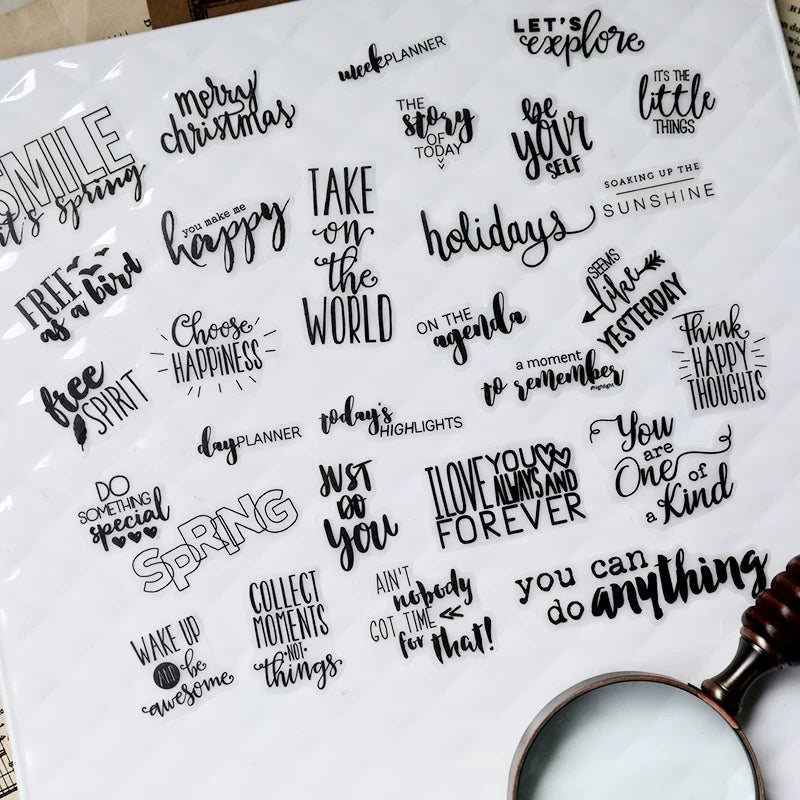 LET'S
explore
week PLANNER
merry
christmas
IT'S THE
little
THINGS
THE
story
OF
TODAY
be
YOUR
SELF
SMILE
it's spring
TAKE
on
the
WORLD
SOAKING UP THE
SUNSHINE
you make me
happy
holidays
FREE
as a bird
SEEMS
like
YESTERDAY
Choose
HAPPINESS
ON THE
agenda
Think
HAPPY
THOUGHTS
a moment
to remember
#highlight
free
SPIRIT
day PLANNER
today's
HIGHLIGHTS
You
are
One of
a Kind
I LOVE YOU
ALWAYS AND
FOREVER
DO
SOMETHING
special
SPRING
JUST
DO
YOU
you can
do anything
COLLECT
MOMENTS
·NOT·
things
AIN'T
nobody
GOT TIME
for that!
WAKE UP
AND be
awesome